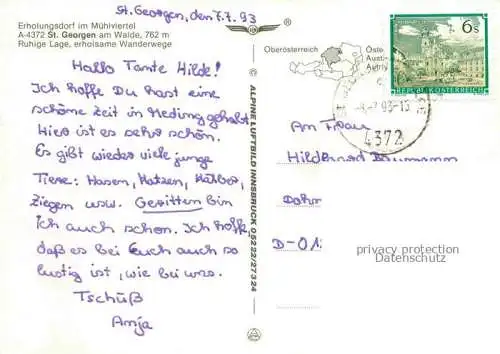 St. Georgen, den 7.7.93
Erholungsdorf im Mühlviertel
A-4372 St. Georgen am Walde, 762 m
Ruhige Lage, erholsame Wanderwege
Hallo Tante Hilde!
Ich hoffe Du hast eine
schöne Zeit in Meding gehabt.
Hier ist es sehr schön.
Es gibt wieder viele junge
Tiere: Hasen, Katzen, Kälber,
Ziegen usw. Geritten bin
ich auch schon. Ich hoffe,
daß es bei Euch auch so
lustig ist, wie bei uns.
Tschüß
Anja
© ALPINE LUFTBILD INNSBRUCK 05222/27324
Oberösterreich
Öste
Austr
Autri
6s
REPUBLIK ÖSTERREICH
93-15
4372
An Frau
Hildegard
D-01
privacy protection
Datenschutz